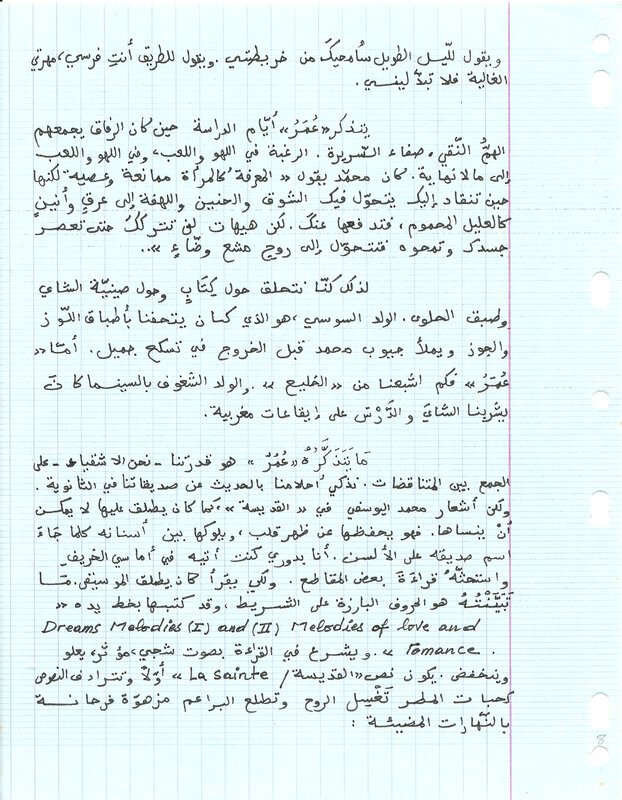 ويقول للّيل الطويل سأمحيكَ من خريطتي. ويقول للطريق أنتِ فرسي، مهرتي
الغالية فلا تبدّليني.
يتذكر «عُمَرُ» أيّام الدراسة حين كان الرفاق يجمعهم
الهمُّ النّقي، صفاء السّريرة. الرغبة في اللهو واللعب، وفي اللهو واللعب
إلى ما لا نهاية. كان محمّد يقول «المعرفة كالمرأة ممانعة وعصية لكنها
حين تنقاد إليك يتحوّل فيك الشوق والحنين واللهفة إلى عرقٍ وأنينٍ
كالعليل المحموم، فتدفعها عنك. لكن هيهات لن تتركك حتى تعصر
جسدك وتمحوه فتتحوّل إلى روحٍ مشع وضّاءٍ»..
لذلك كنّا نتحلق حول كِتَابٍ وحول صينيّة الشاي
وطبق الحلوى. الولد السوسي، هو الذي كان يتحفنا بأطباق اللّوز
والجوز ويملأ جيوب محمد قبل الخروج في تسكع جميل. أمّا «
عُمَرُ» فكم اشبعنا من «الخليع». والولد الشغوف بالسينما كان
يشربنا الشايَ والدَّرْسَ على إيقاعات مغربية.
مَا يَتَذَكَّرُهُ «عُمَرُ» هو قدرتنا - نحن الاشقياء - على
الجمع بين المتناقضات. نذكي أحلامنا بالحديث عن صديقاتنا في الثانوية.
ولكن أشعار محمد اليوسفي في «القديسة»، كما كان يطلق عليها لا يمكن
أنْ ينساها. فهو يحفظها عن ظهر قلب، ويلوكها بين أسنانه كلما جَاءَ
اسم صديقه على الألسن. أنا بدوري كنت أتيه في أماسي الخريف
واستحثّهُ قراءةَ بعض المقاطع. ولكي يقرأ كان يطلق الموسيقى. مَا
تَبَيَّنْتُهُ هو الحروف البارزة على الشريط، وقد كتبها بخط يده «
Dreams Melodies (I) and (II) Melodies of love and
romance». ويشرع في القراءة بصوت شجي، مؤثر، يعلو
وينخفض. يكون نص «القديسة / La sainte» أوّلاً وتترادف النصوص
كحبات المطر تَغْسِل الروح وتطلع البراعم مزهوّة فرحانة
بالنّهارات المضيئة:
8